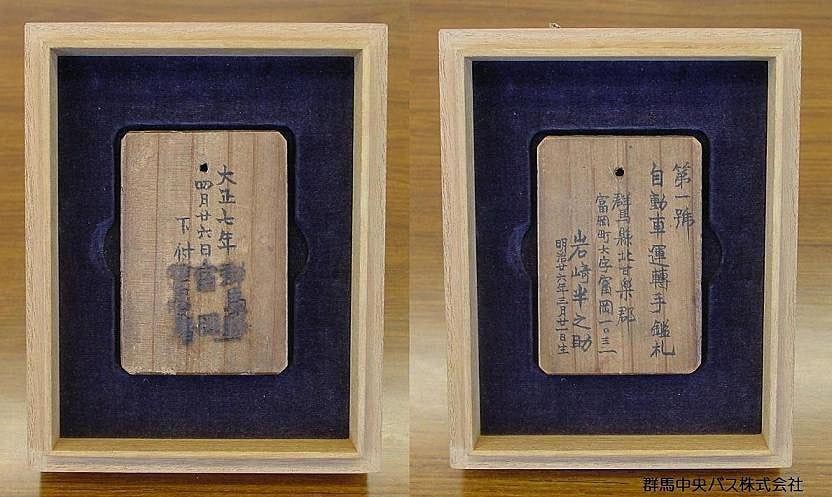 大正七年
四月廿六日
下付
第一號
自動車運轉手鑑札
群馬縣北甘楽郡
富岡町大字富岡一〇三一
岩崎半之助
明治廿六年三月廿一日生
群馬中央バス株式会社